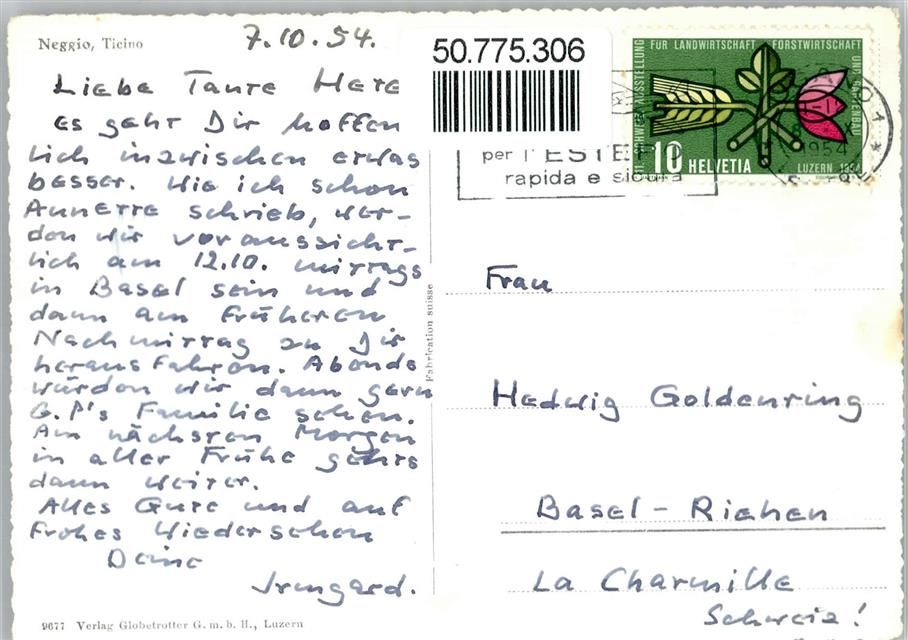 Neggio, Ticino
7.10.54.
Liebe Tante Hete
es geht Dir hoffen
lich inzwischen etwas
besser. Wie ich schon
Annette schrieb, wer-
den wir voraussicht-
lich am 12.10. mittags
in Basel sein und
dann am früheren
Nachmittag zu Dir
herausfahren. Abends
würden wir dann gern
G.P's Familie sehen.
Am nächsten Morgen
in aller Frühe gehts
dann weiter.
Alles Gute und auf
frohes Wiedersehen
Deine
Irmgard.
9677 Verlag Globetrotter G. m. b. H., Luzern
Fabrication suisse
50.775.306
AUSSTELLUNG FÜR LANDWIRTSCHAFT FORSTWIRTSCHAFT UND GARTENBAU
10 HELVETIA
LUZERN 1954
per l'ESTERO
rapida e sicura
1954
Frau
Hedwig Goldenring
Basel - Riehen
La Charmille
Schweiz!